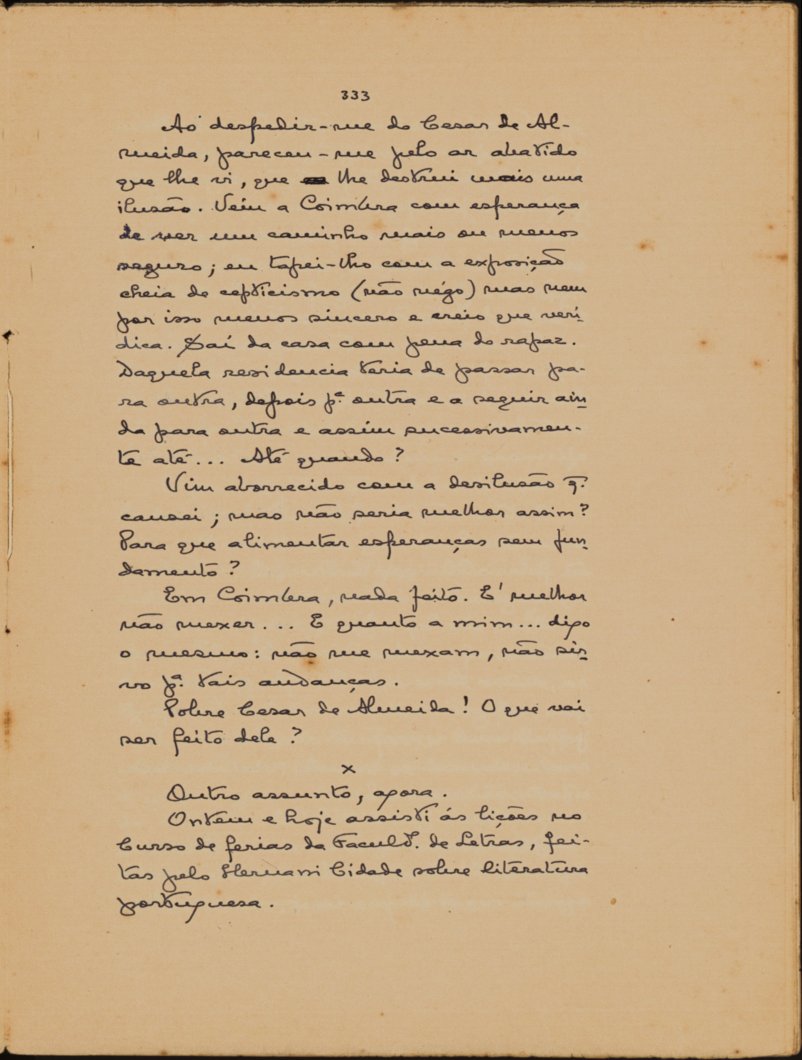 333
Ao despedir-me do Cesar de Al-
meida, pareceu-me pelo ar abatido
que lhe vi, que lhe destrui mais uma
ilusão. Veiu a Coimbra com esperança
de ver um caminho mais ou menos
seguro; eu tapei-lho com a exposição
cheia de cepticismo (não négo) mas nem
por isso menos sincero e creio que veri-
dica. Saí da casa com pena do rapaz.
Daquela residencia teria de passar pa-
ra outra, depois pª outra e a seguir ain-
da para outra e assim sucessivamen-
te até... Até quando?
Vim aborrecido com a desilusão q.
causei; mas não seria melhor assim?
Para que alimentar esperanças sem fun-
damento?
Em Coimbra, nada feito. E' melhor
não mexer... E quanto a mim... digo
o mesmo: não me mexam, não sir-
vo pª tais andanças.
Pobre Cesar de Almeida! O que vai
ser feito dele?
x
Outro assunto, agora.
Ontem e hoje assisti ás lições no
Curso de ferias da Faculd. de Letras, fei-
tas pelo Hernani Cidade sobre literatura
portuguesa.